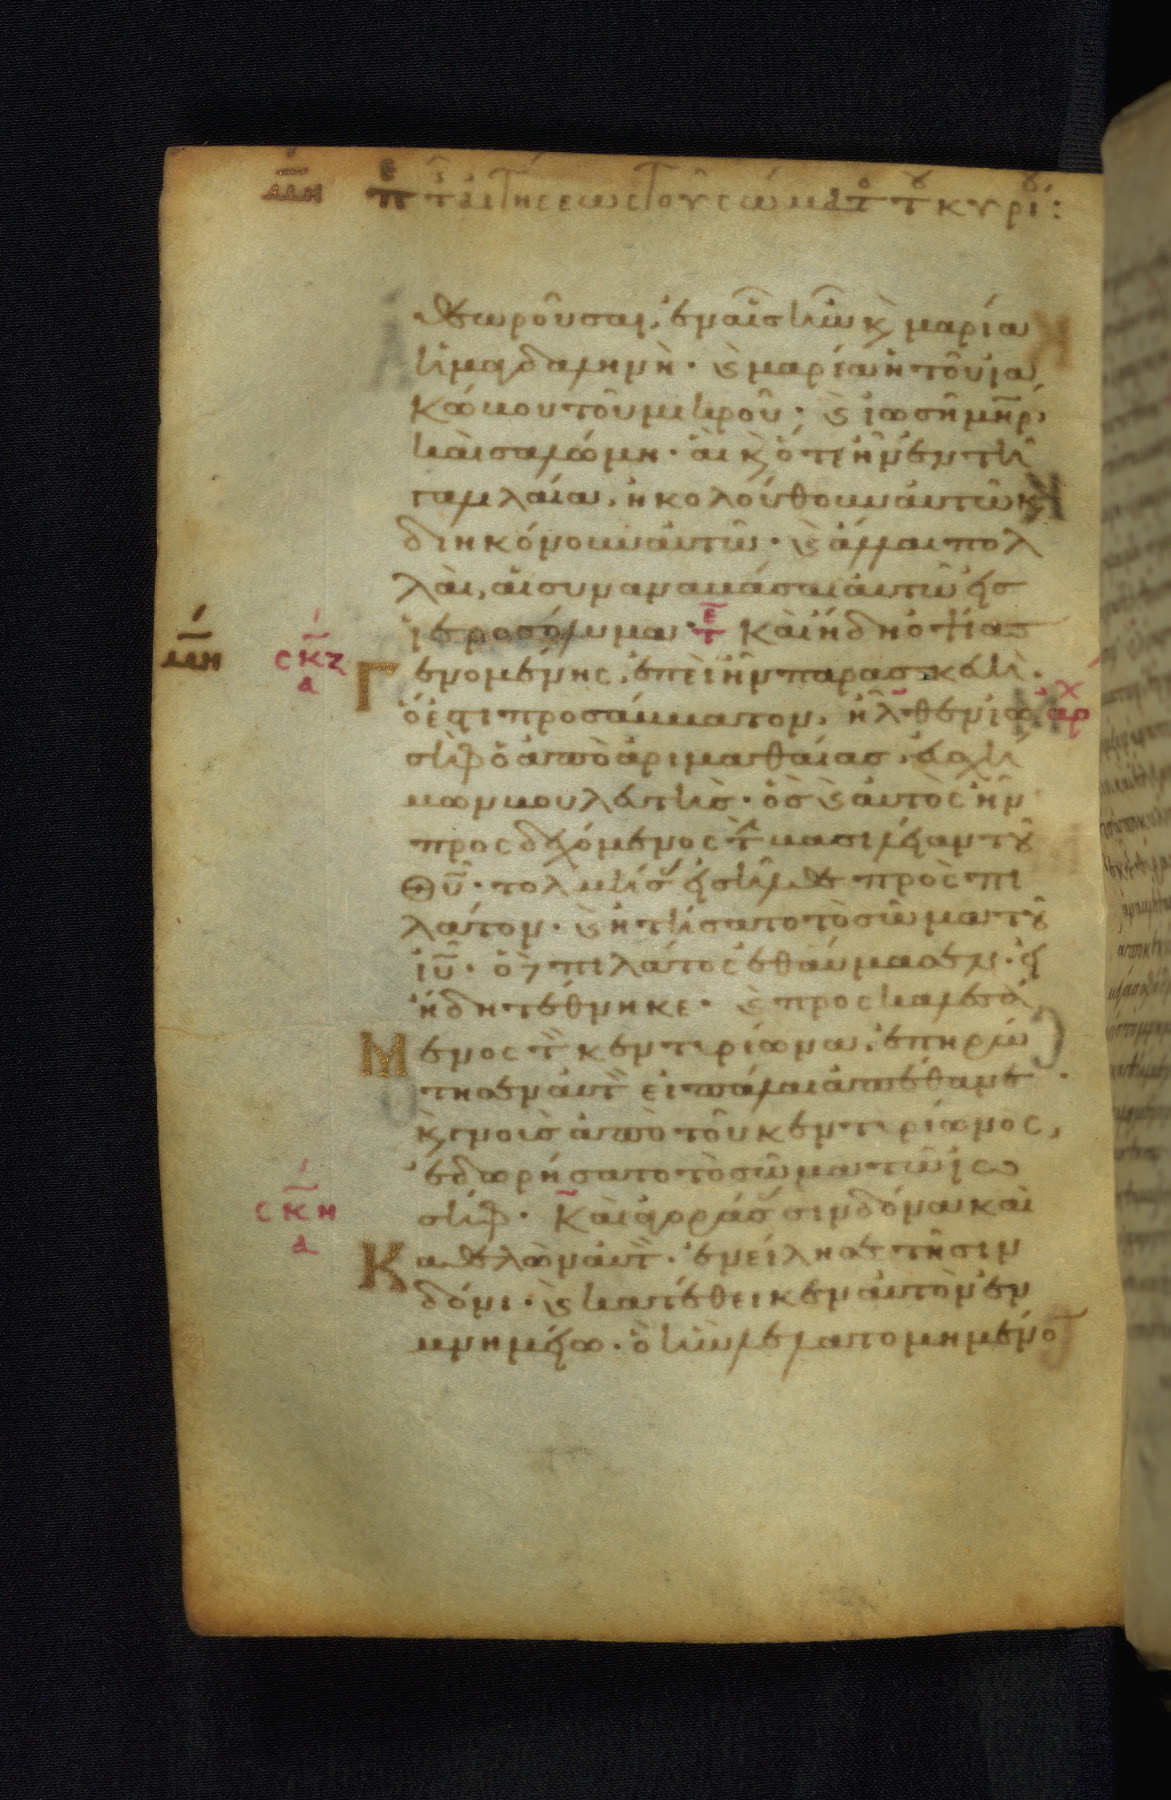 μη περὶ τῆς αἰτήσεως τοῦ σώματος τοῦ κυρίου:
θεωροῦσαι, ἐν αἷς ἦν κ̀ μαρία
ἡ μαγδαληνὴ· κ̀ μαρία ἡ τοῦ ἰα
κώβου τοῦ μικροῦ· κ̀ ἰωσῆ μηρ,
καὶ σαλώμη· αἳ κ̀ ὅτε ἦν ἐν τῆ
γαλιλαία, ἠκολούθουν αὐτῶ κ̀
διηκόνουν αὐτῶ· κ̀ ἄλλαι πολ
λαὶ, αἱ συναναβάσαι αὐτῶ εἰς
ἱεροσόλυμα· τε Καὶ ἤδη ὀψίας
σκζ α Γενομένης, ἐπεὶ ἦν παρασκευὴ·
ὅ ἐστι προσάββατον, ἦλθεν ἰω αρχ
σὴφ ὁ ἀπὸ ἀριμαθαίας, εὐσχή
μων βουλευτὴς· ὃς κ̀ αὐτὸς ἦν
προσδεχόμενος τ̀ βασιλείαν τοῦ
θῦ· τολμήσας εἰσῆλθε πρὸς πι
λάτον· κ̀ ἠτήσατο τὸ σῶμα τοῦ
ἰῦ· ὁ δὲ πιλάτος ἐθαύμασεν· εἰ
ἤδη τέθνηκε· κ̀ προσκαλεσά
Μενος τὸν κεντυρίωνα, ἐπηρώ
τησεν αὐτὸν εἰ πάλαι ἀπέθανε·
κ̀ γνοὺς ἀπὸ τοῦ κεντυρίωνος,
ἐδωρήσατο τὸ σῶμα τῶ ἰω
σκη α σήφ· Καὶ ἀγοράσας σινδόνα καὶ
Καθελὼν αὐτὸν· ἐνείλησε τῆ σιν
δόνι· κ̀ κατέθηκεν αὐτὸν ἐν
μνημείω· ὃ ἦν λελατομημένο